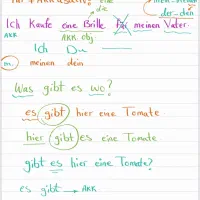 eine
die
der - den
Ich Kaufe eine Brille für meinen Vater.
AKK AKK obj
Ich Du
m. meinen dein
Was gibt es wo?
es gibt hier eine Tomate
hier gibt es eine Tomate
gibt es hier eine Tomate?
es gibt → AKK